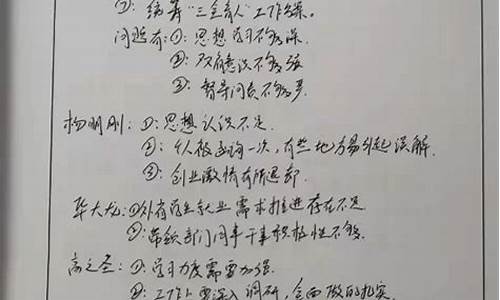 ②: 统筹“三全育人”工作
问题有: ①: 思想学习不够深.
②: 政府意识不够强
③: 督导问责不够严
杨明刚: ①: 思想认识不足.
②: 仅被函询一次, 有些地方易引起误解.
③: 创业激情有所退却.
华大龙: ①: 需求推进存在不足
②: 带领部门同事干事积极性不够.
高之圣: ①: 学习力度需要加强.
②: 工作上要深入调研, 全面做的扎实.